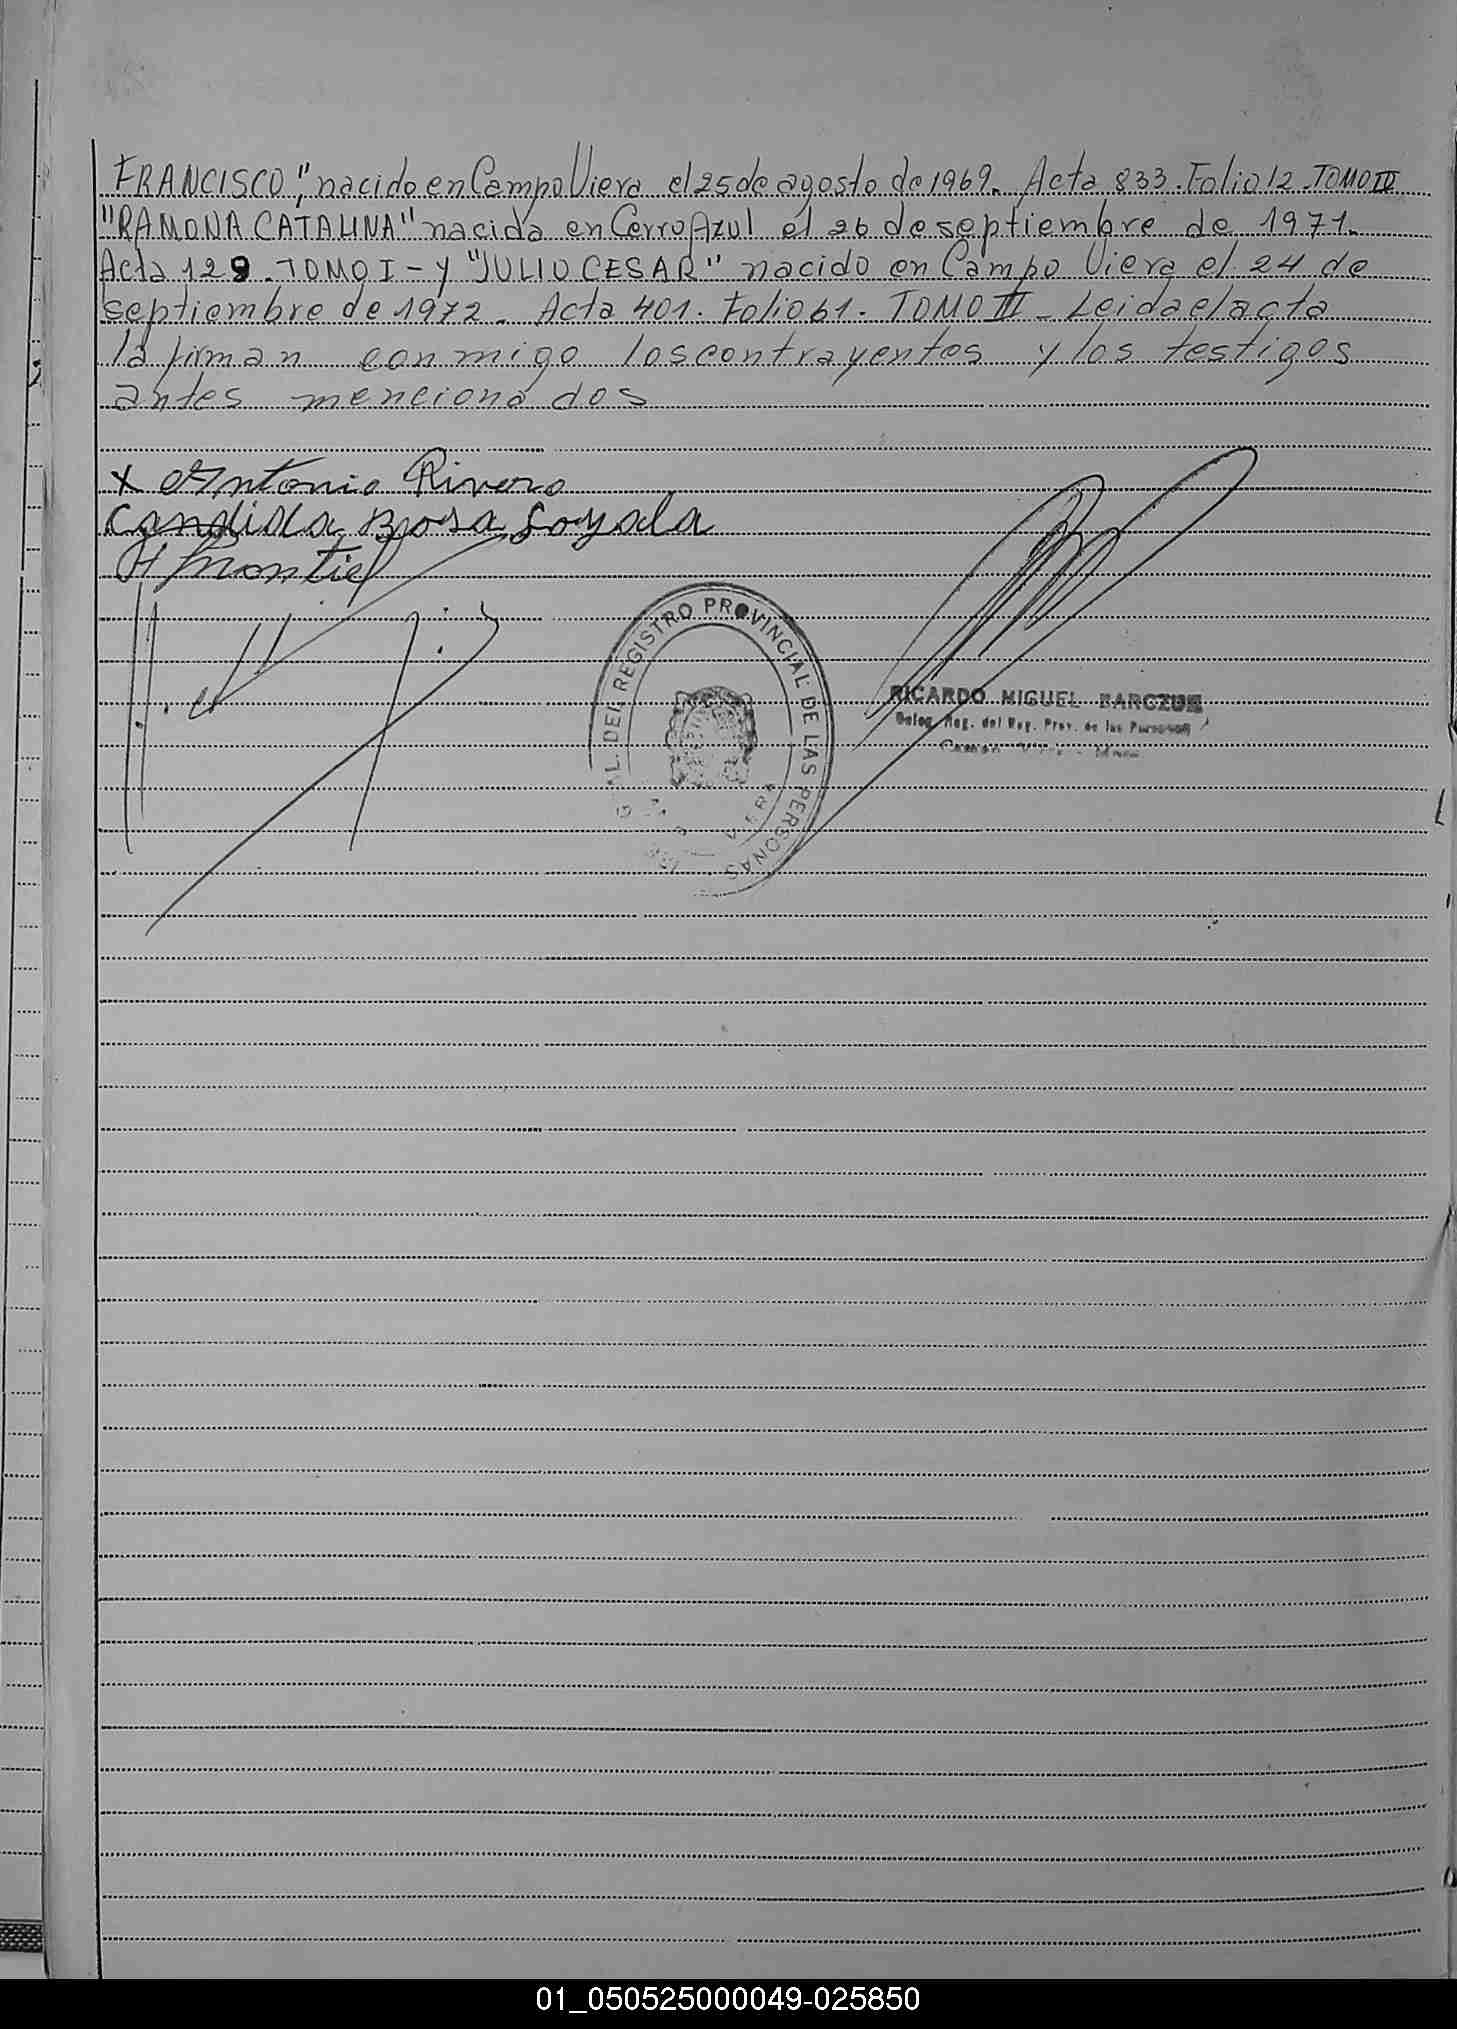 FRANCISCO", nacido en Campo Viera el 25 de agosto de 1969. Acta 833. Folio 12. TOMO IV
"RAMONA CATALINA" nacida en Cerro Azul el 26 de septiembre de 1971.
Acta 129. TOMO I - y "JULIO CESAR" nacido en Campo Viera el 24 de
septiembre de 1972. Acta 401. Folio 61. TOMO III - Leida el acta
la firman conmigo los contrayentes y los testigos
antes mencionados
x Antonio Rivero
Candida Rosa Loyola
H Montiel
DEL REGISTRO PROVINCIAL DE LAS PERSONAS
VIERA
RICARDO MIGUEL
Deleg. Reg. del Reg. Prov. de las Personas
01_050525000049-025850